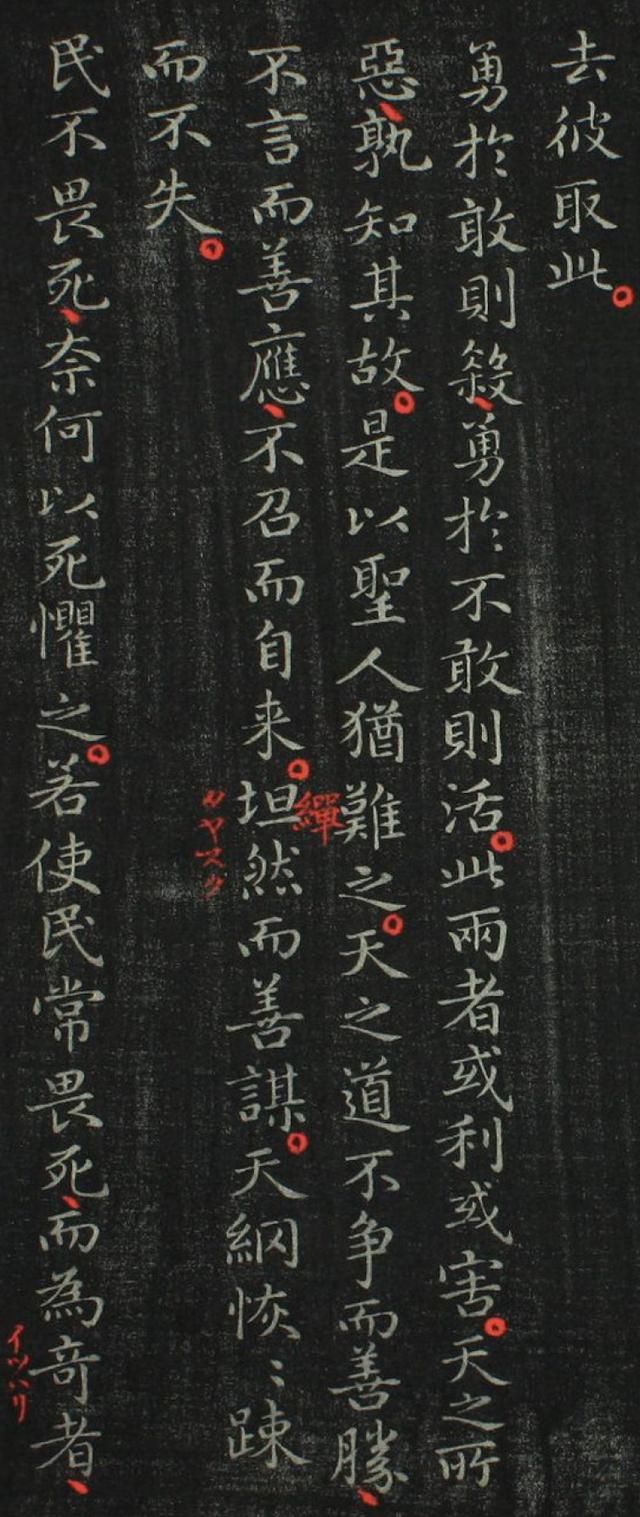 去彼取此。
勇於敢則殺、勇於不敢則活。此兩者或利或害。天之所
惡、孰知其故。是以聖人猶難之。天之道不争而善勝、
不言而善應、不召而自来。坦然而善謀。天網恢〻踈
繟
タヤスク
而不失。
民不畏死、奈何以死懼之。若使民常畏死、而為奇者、
イツハリ